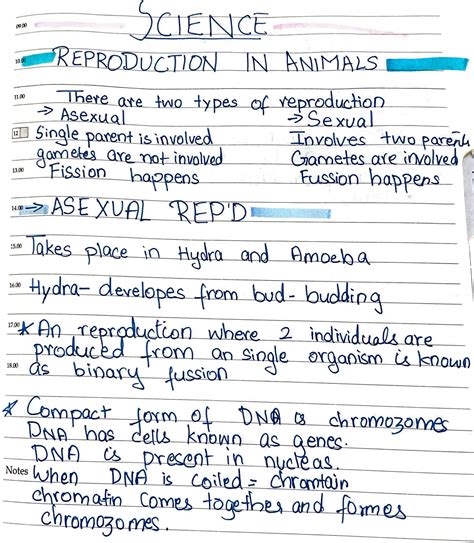 SCIENCE
09.00
10.00 REPRODUCTION IN ANIMALS
11.00 There are two types of reproduction
→ Asexual → Sexual
12 Single parent is involved Involves two parent
gametes are not involved Gametes are involved
13.00 Fission happens Fussion happens
14.00 → ASEXUAL REP'D
15.00 Takes place in Hydra and Amoeba
16.00 Hydra- developes from bud - budding
17.00 * An reproduction where 2 individuals are
produced from an single organism is known
18.00 as binary fussion
* Compact form of DNA is chromozomes
DNA has cells known as genes.
DNA is present in nucleas.
Notes When DNA is coiled = chromtain
chromatin comes together and formes
chromozomes.